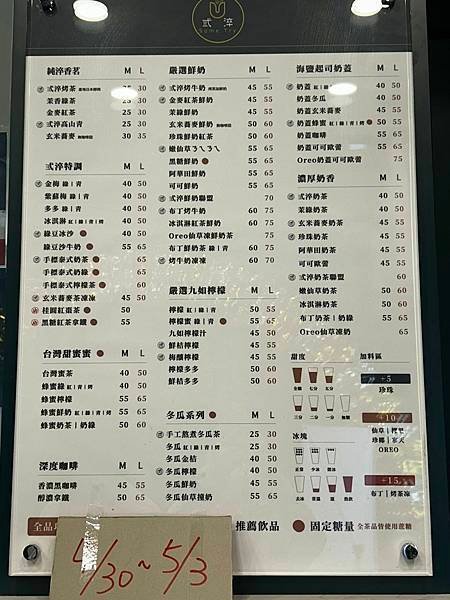 弎淬
Some Try
純淬香茗 M L
弎淬烤茶 25 30
茉香綠茶 25 30
金麥紅茶 25 30
弎淬高山青 25 30
玄米蕎麥 30 35
弎淬特調 M L
金梅 綠|青 40 50
紫蘇梅 綠|青 40 50
多多 綠|青 40 50
冰淇淋 紅|綠|青|烤 40 50
綠豆冰沙 50 60
綠豆沙牛奶 55 65
手標泰式奶茶 65
手標泰式奶綠 65
手標泰式檸檬茶 60
玄米蕎麥茶凍凍 45 50
桂圓紅棗茶 50
黑糖紅茶拿鐵 50
台灣甜蜜蜜 M L
台灣蜜茶 40 50
蜂蜜綠 紅|青|烤 40 50
蜂蜜檸檬 50 60
蜂蜜鮮奶 紅|綠|青|烤 55 65
蜂蜜奶茶|奶綠 50 60
深度咖啡 M L
香濃黑咖啡 45 55
醇濃拿鐵 50 65
嚴選鮮奶 M L
弎淬烤牛奶 45 55
金麥紅茶鮮奶 45 55
茉綠鮮奶 45 55
玄米蕎麥鮮奶 50 60
珍珠鮮奶紅茶 50 60
嫩仙草ㄋㄟㄋㄟ 50 60
黑糖鮮奶 55 65
阿華田鮮奶 55 65
可可鮮奶 55 65
弎淬鮮奶聯盟 70
布丁烤牛奶 60 75
冰淇淋紅茶鮮奶 60 75
Oreo仙草凍鮮奶茶 75
布丁鮮奶茶 綠|青 60 75
烤牛奶凍凍 60 70
嚴選九如檸檬 M L
檸檬 紅|綠|青 50 55
檸檬蜜 綠|青 55 65
九如檸檬汁 45 55
鮮桔檸檬 45 55
梅釀檸檬 45 55
檸檬多多 50 60
鮮桔多多 50 60
冬瓜系列 M L
手工熬煮冬瓜茶 25 30
冬瓜茶 紅|綠|青|烤 25 30
冬瓜金桔 40 50
冬瓜檸檬 40 50
冬瓜鮮奶 45 55
冬瓜仙草撞奶 55 65
海鹽起司奶蓋 M L
奶蓋 紅|綠|青|烤 40 50
奶蓋冬瓜 40 50
奶蓋玄米蕎麥 45 55
奶蓋蜂蜜 紅|綠|青|烤 50 55
奶蓋咖啡 55 65
奶蓋可可歐蕾 55 65
Oreo奶蓋可可歐蕾 75
濃厚奶香 M L
弎淬奶茶 40 50
茉綠奶茶 40 50
玄米蕎麥奶茶 45 55
珍珠奶茶 45 55
阿華田奶茶 45 55
可可歐蕾 45 55
弎淬奶茶聯盟 60
嫩仙草奶茶 50 60
冰淇淋奶茶 50 60
布丁奶茶|奶綠 55 65
Oreo仙草凍奶 65
甜度
全糖 七分 五分
三分 二分 一分 無糖
冰塊
正常 少冰 微冰
去冰 常溫 溫 熱飲
加料區
+5
珍珠
+10
仙草|椰果
珍椰|寒天
OREO
+15
布丁|烤茶凍
全品項
推薦飲品 固定糖量 全茶品皆使用蔗糖
4/30~5/3